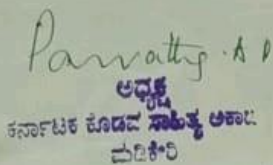 Parvathy. A P
ಅಧ್ಯಕ್ಷ
ಕರ್ನಾಟಕ ಕೊಡವ ಸಾಹಿತ್ಯ ಅಕಾಡ
ಮಡಿಕೇರಿ